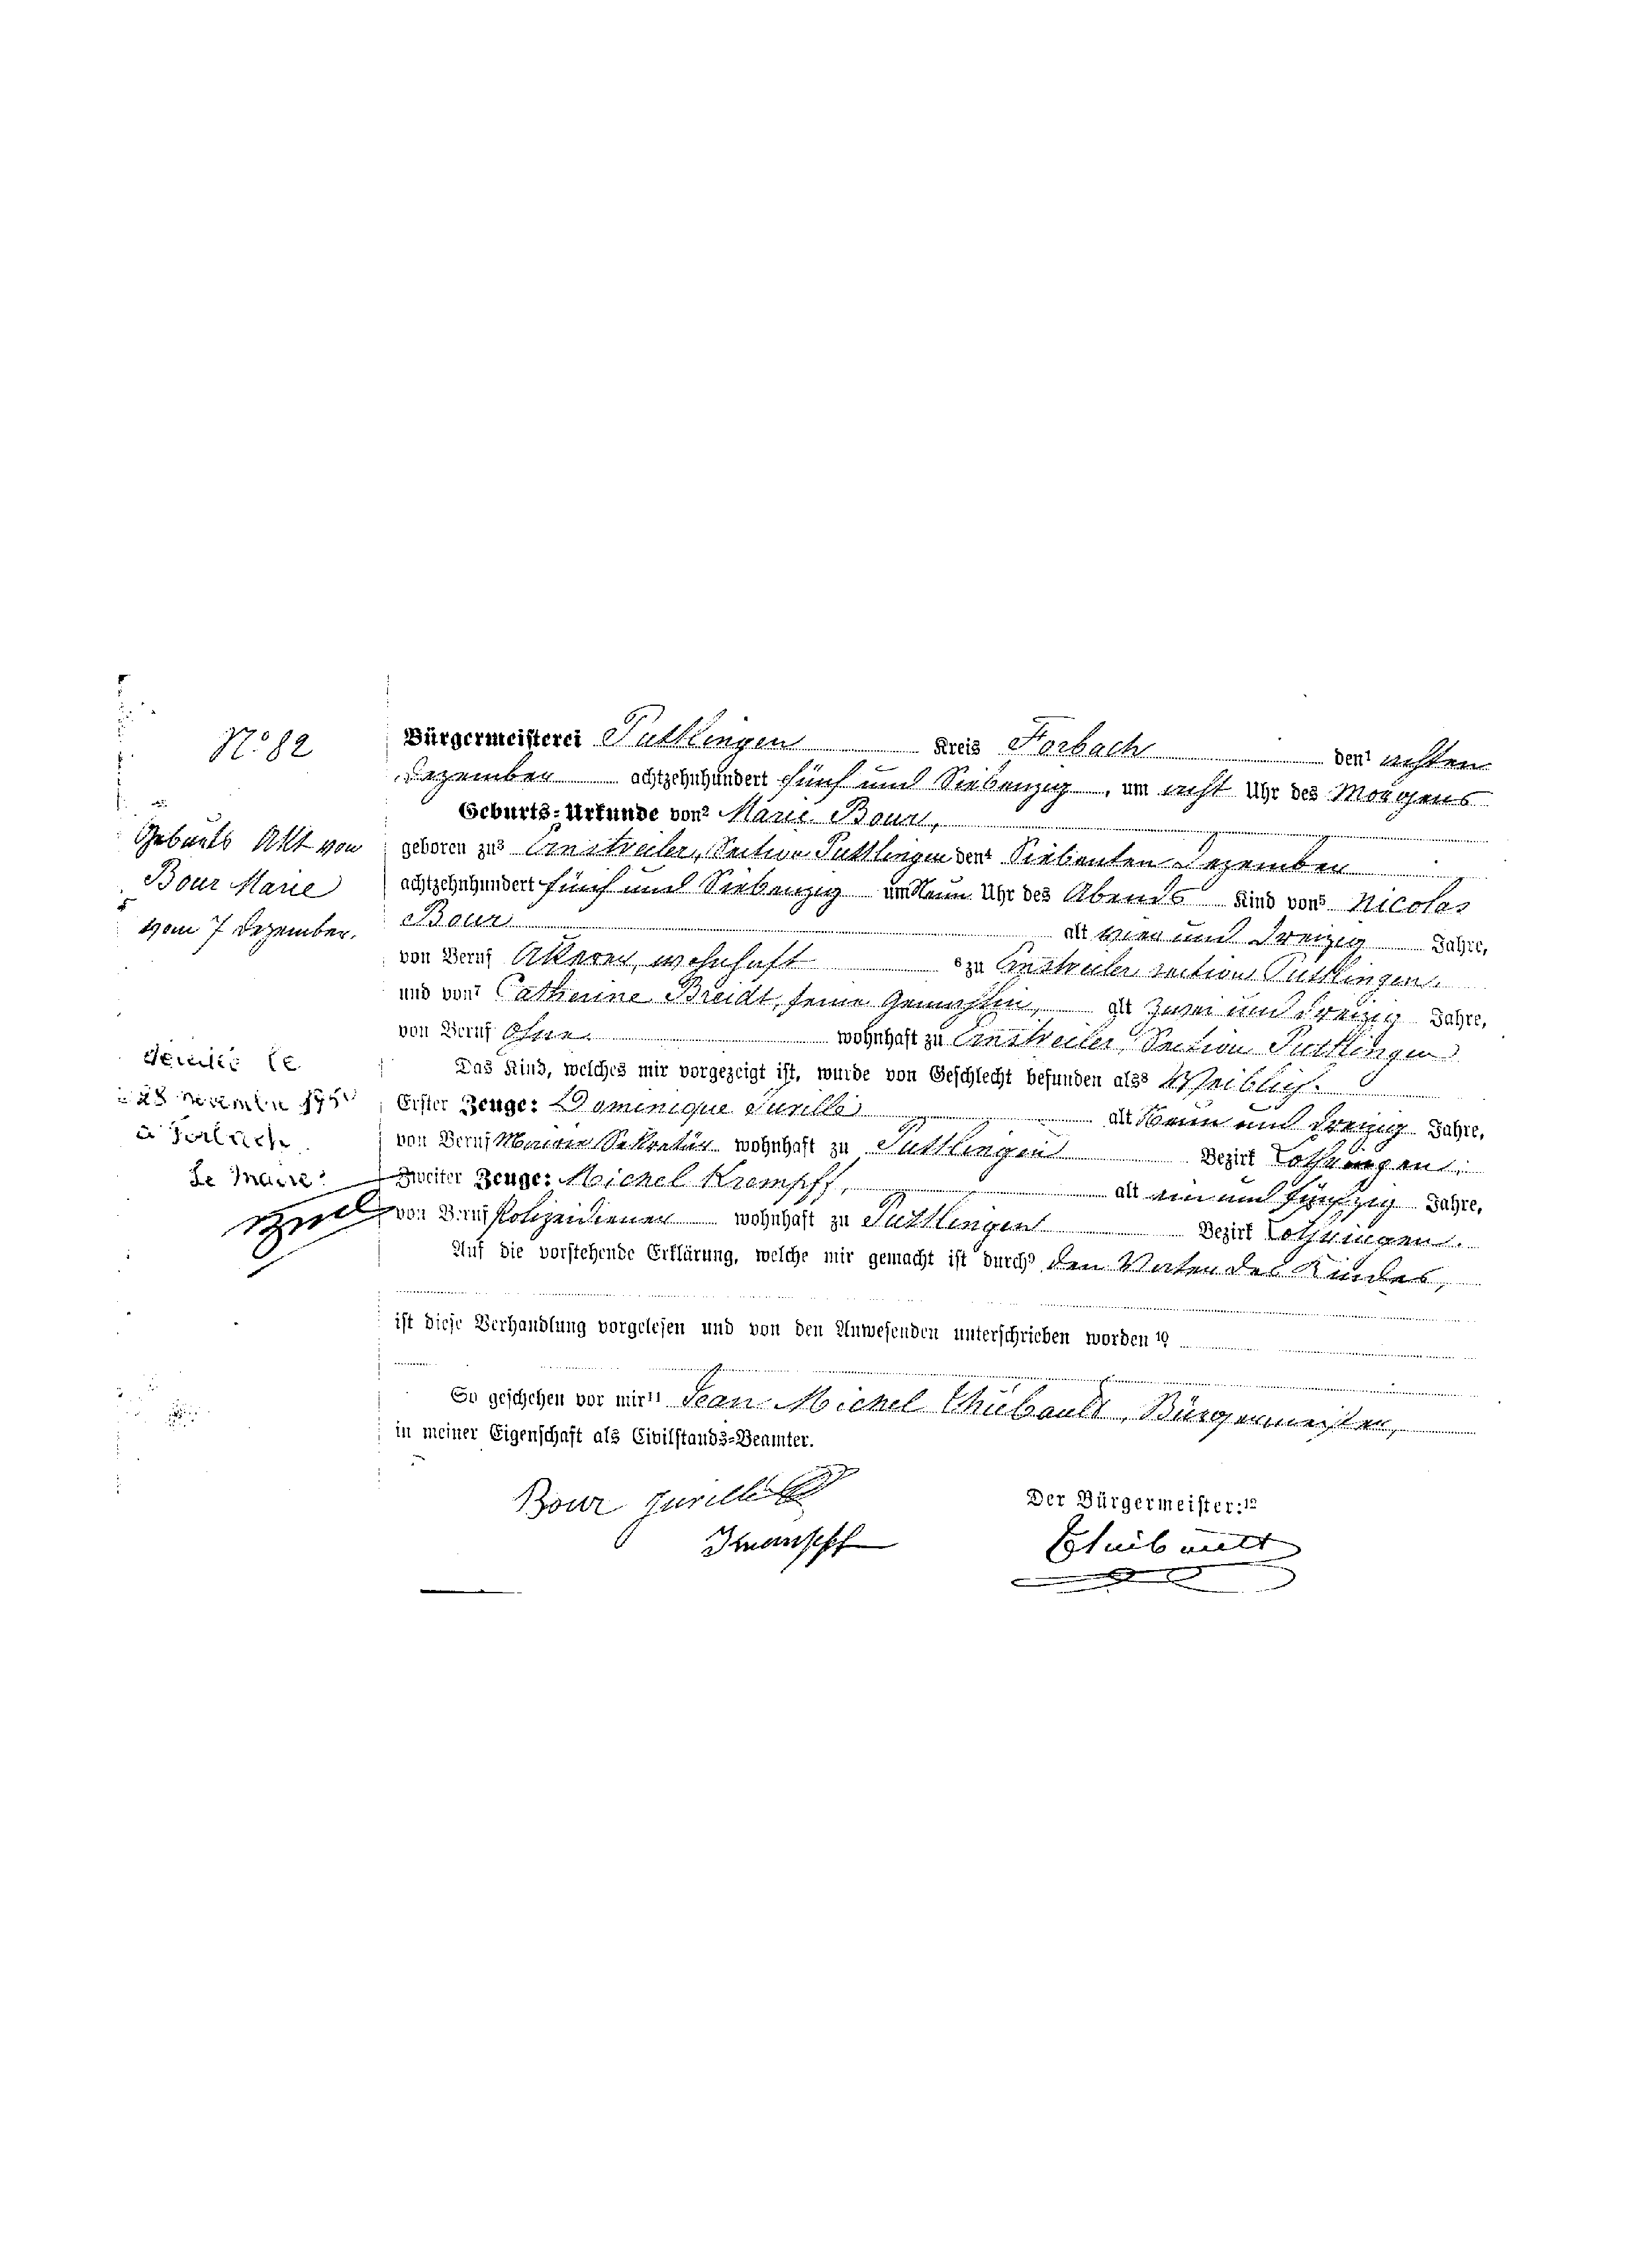 N° 82
Geburts Akt von
Bour Marie
vom 7 Dezember.
décédée le
28 novembre 195
à Forbach
Le Maire:
Bürgermeisterei Puttlingen Kreis Forbach den¹ achten
Dezember achtzehnhundert fünf und Siebenzig, um acht Uhr des Morgens
Geburts-Urkunde von² Marie Bour,
geboren zu³ Ernstweiler, Section Puttlingen den⁴ Siebenten Dezember
achtzehnhundert fünf und Siebenzig um Neun Uhr des Abends Kind von⁵ Nicolas
Bour alt vier und dreizig Jahre,
von Beruf Akerer, wohnhaft ⁶zu Ernstweiler, section Puttlingen.
und von⁷ Catherine Breidt, seine Gemahlin, alt Zwei und dreizig Jahre,
von Beruf ohne. wohnhaft zu Ernstweiler, Section Puttlingen
Das Kind, welches mir vorgezeigt ist, wurde von Geschlecht befunden als⁸ Weiblich.
Erster Zeuge: Dominique Jurillé alt Neun und dreizig Jahre,
von Beruf Mairie Sekretär wohnhaft zu Puttlingen Bezirk Lothringen;
Zweiter Zeuge: Michel Krempff, alt ein und fünfzig Jahre,
von Beruf Polizeidiener wohnhaft zu Puttlingen Bezirk Lothringen.
Auf die vorstehende Erklärung, welche mir gemacht ist durch⁹ den Vater des Kindes,
ist diese Verhandlung vorgelesen und von den Anwesenden unterschrieben worden¹⁰
So geschehen vor mir¹¹ Jean Michel Thiébault, Bürgermeister,
in meiner Eigenschaft als Civilstands-Beamter.
Bour Jurillé
Krempff
Der Bürgermeister:¹²
Thiébault